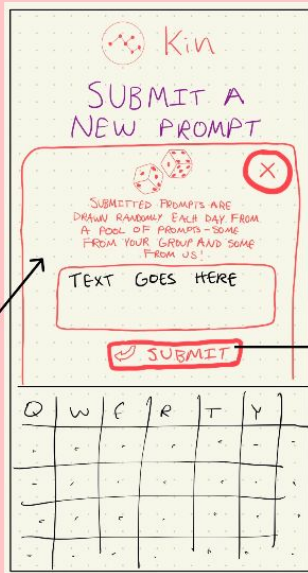 Kin
SUBMIT A
NEW PROMPT
SUBMITTED PROMPTS ARE
DRAWN RANDOMLY EACH DAY FROM
A POOL OF PROMPTS-SOME
FROM YOUR GROUP AND SOME
FROM US!
TEXT GOES HERE
SUBMIT
Q W E R T Y